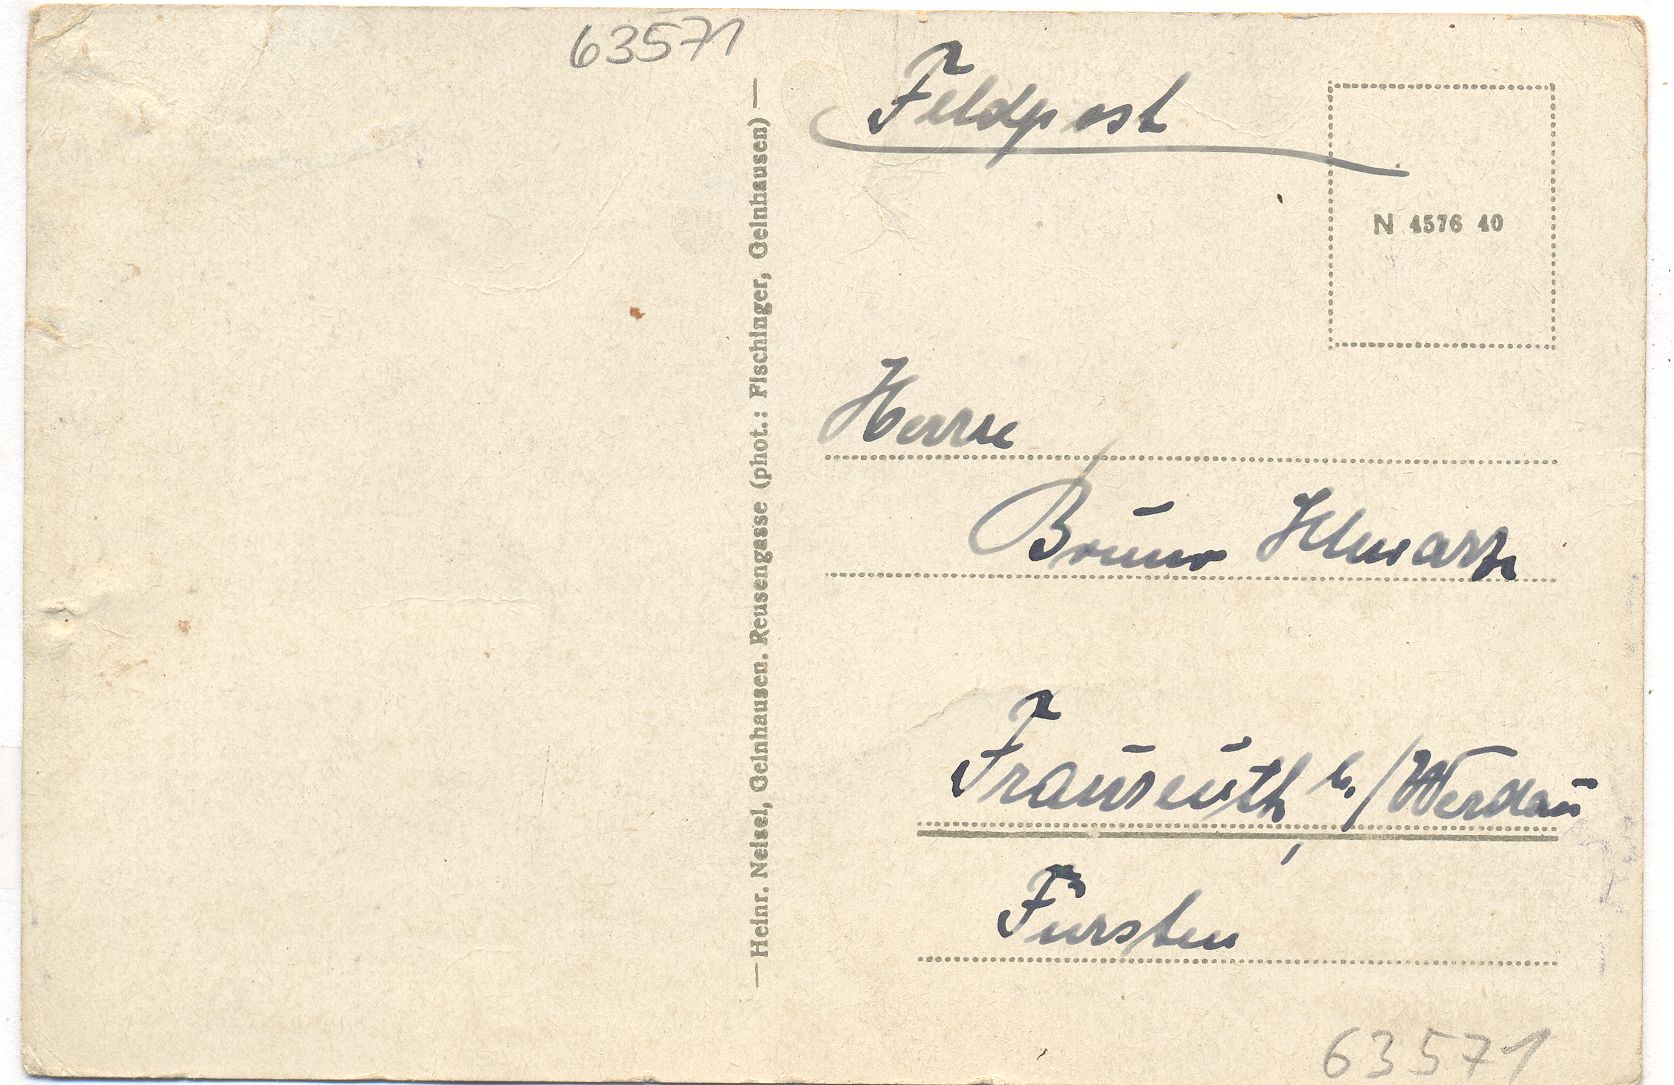 63571
Feldpost
N 4576 40
Heinr. Neisel, Gelnhausen, Reusengasse (phot.: Fischinger, Gelnhausen)
Herrn
Bruno Schwarz
Fraureuth b./Werdau
Fursten
63571